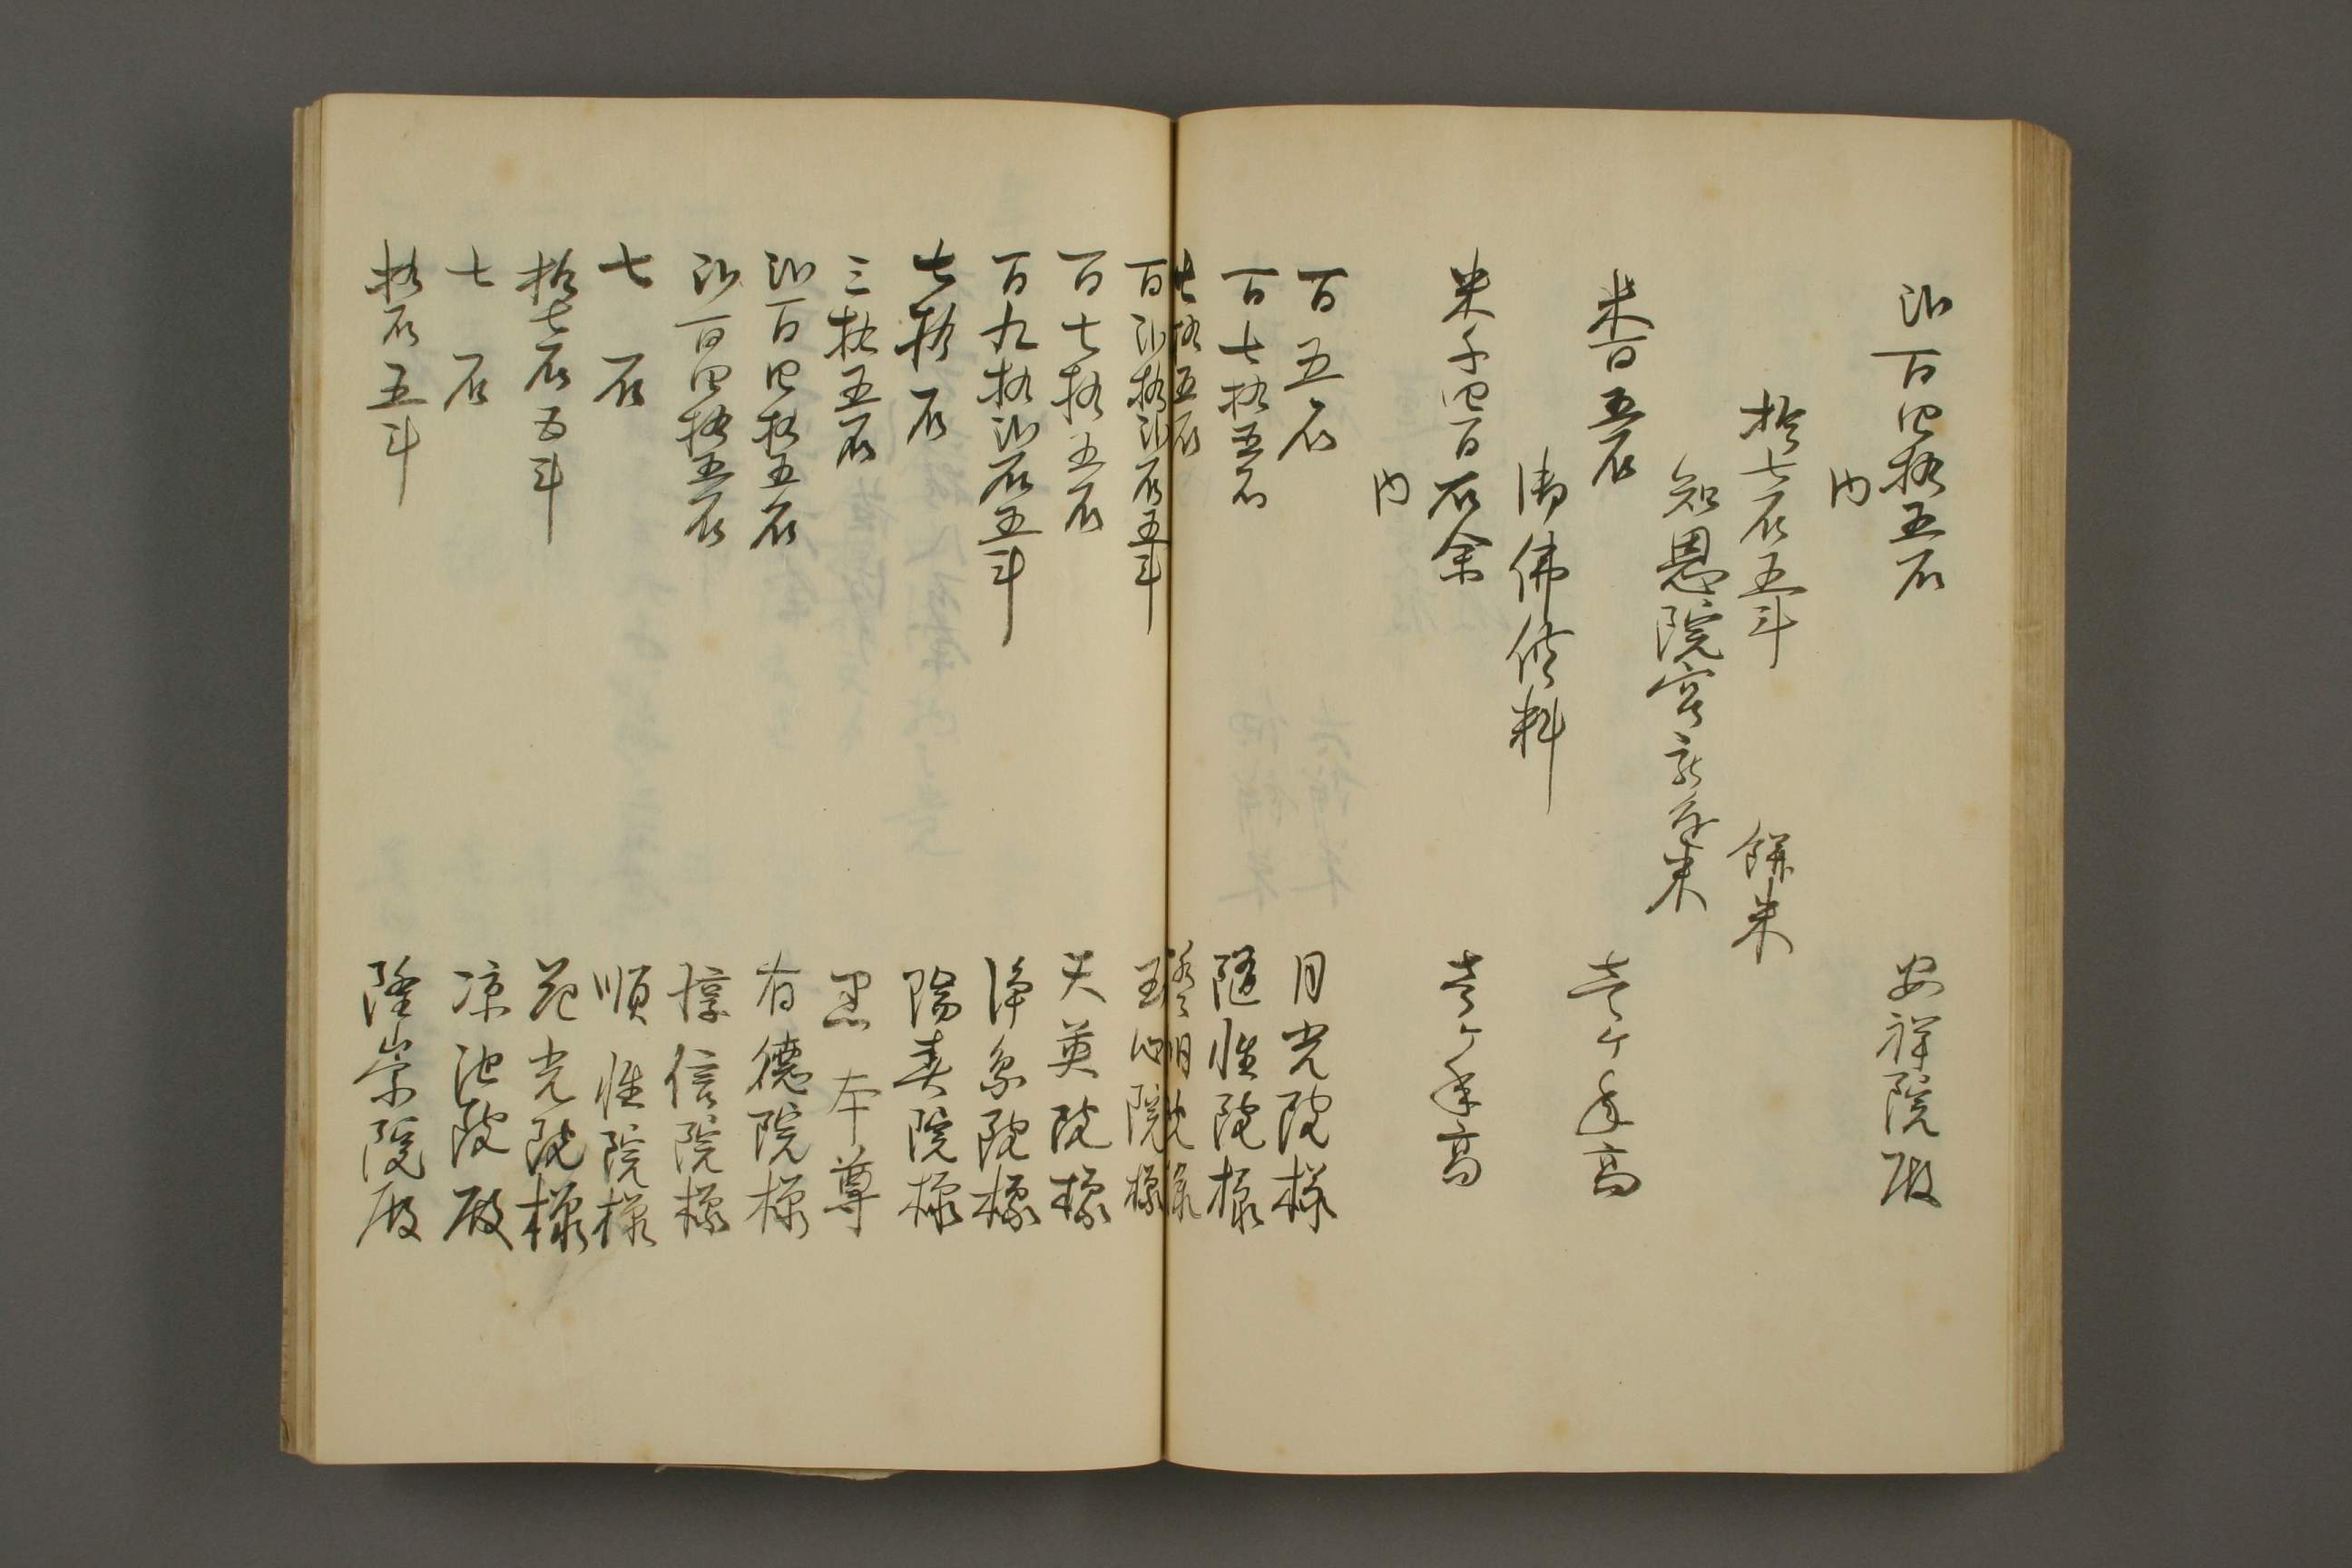 弐百四拾五石 安祥院殿
内
拾七石五斗 餅米
知恩院宮家来
米百五石 壱ケ年高
御佛供料
米千四百石余 壱ケ年高
内
百五石 月光院様
百七拾五石 随性院様
七拾五石
百弐拾弐石五斗 至心院様
百七拾五石 天英院様
百九拾弐石五斗 浄円院様
七拾石 陽春院様
三拾五石 黒本尊
弐百四拾五石 有徳院様
弐百四拾五石 惇信院様
七石 順性院様
拾七石五斗 花光院様
七石 凉池院殿
拾石五斗 隆崇院殿